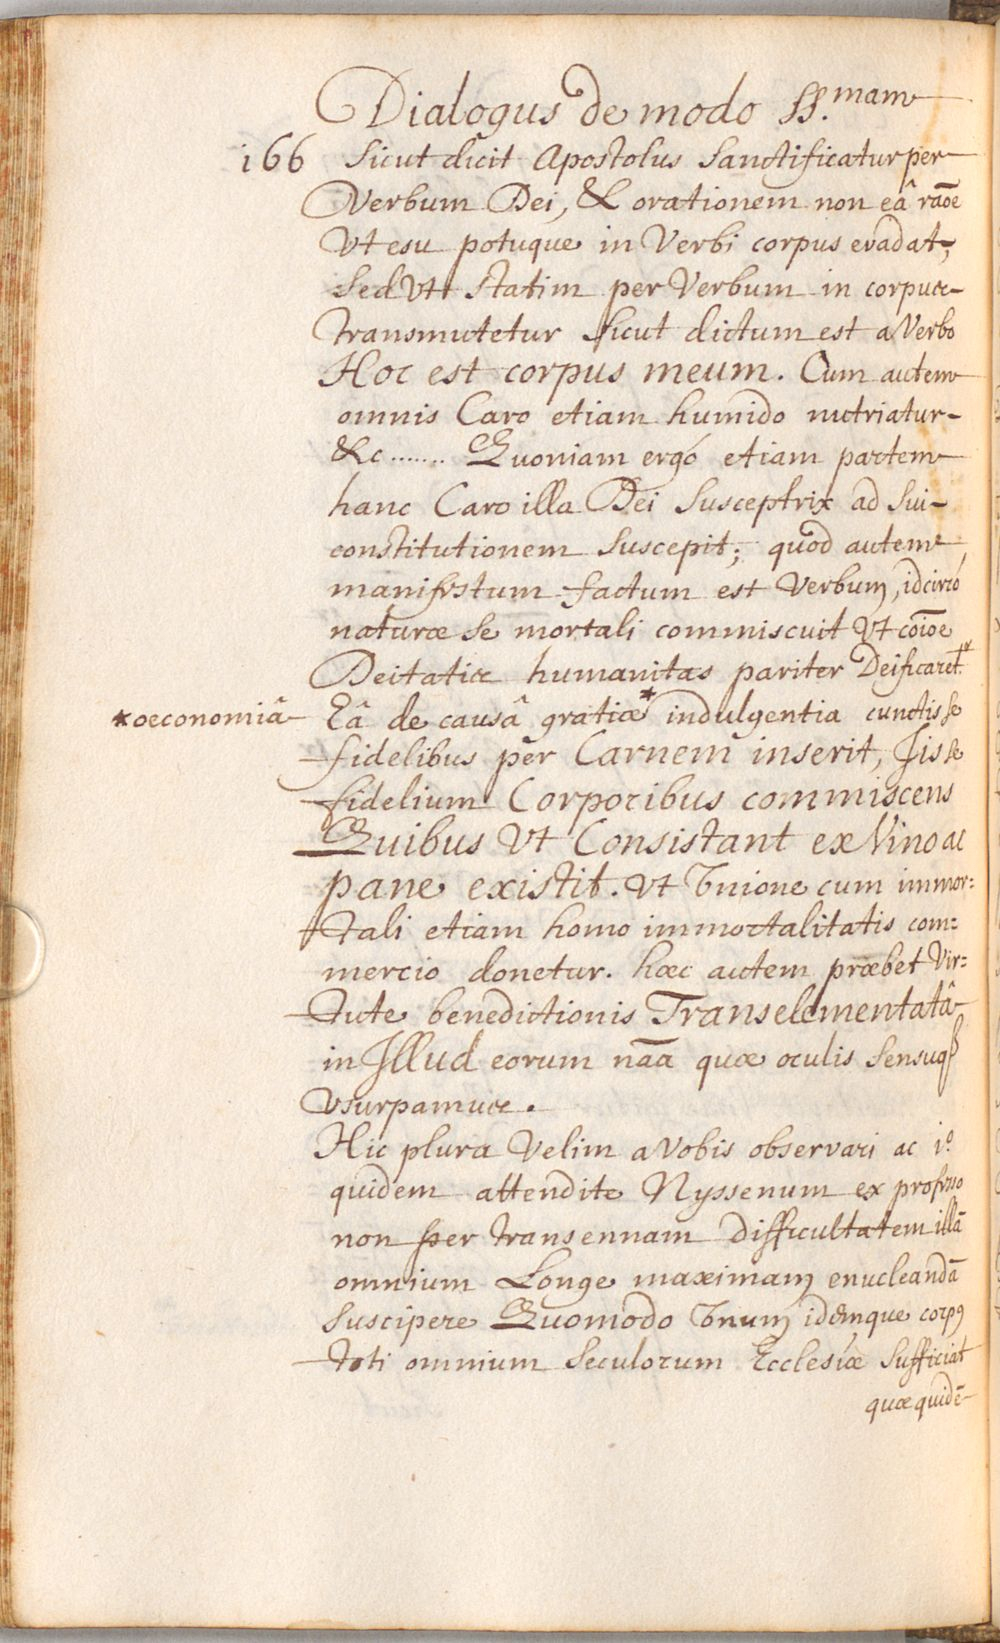 Dialogus de modo SS.mam
166 sicut dicit Apostolus Sanctificatur per
Verbum Dei, & orationem non eâ rāoe
Vt esu potuque in Verbi corpus evadat,
sed Vt statim per Verbum in corpus
transmutetur sicut dictum est a Verbo
Hoc est corpus meum. Cum autem
omnis Caro etiam humido nutriatur
&c ....... Quoniam ergó etiam partem
hanc Caro illa Dei Susceptrix ad Sui
constitutionem suscepit; quod autem
manifestum factum est Verbum, idcircó
naturæ se mortali commiscuit Vt cōioe
Deitatis humanitas pariter Deificaretr.
*oeconomiâ Eâ de causâ gratiæ* indulgentia cunctis se
fidelibus per Carnem inserit, Iis se
fidelium Corporibus commiscens
Quibus Vt Consistant ex Vino ac
pane existit. Vt Unione cum immor=
tali etiam homo immortalitatis com=
mercio donetur. hæc autem præbet Vir=
tute benedictionis Transelementatâ
in Illud eorum nāā quæ oculis sensuq
Vsurpamus.
Hic plura Velim a Vobis observari ac 1º
quidem attendite Nyssenum ex professo
non per transennam difficultatem illā
omnium Longe maximam enucleandā
suscipere Quomodo Unum idemque corp9
toti omnium seculorum Ecclesiæ sufficiat
quæ quidē